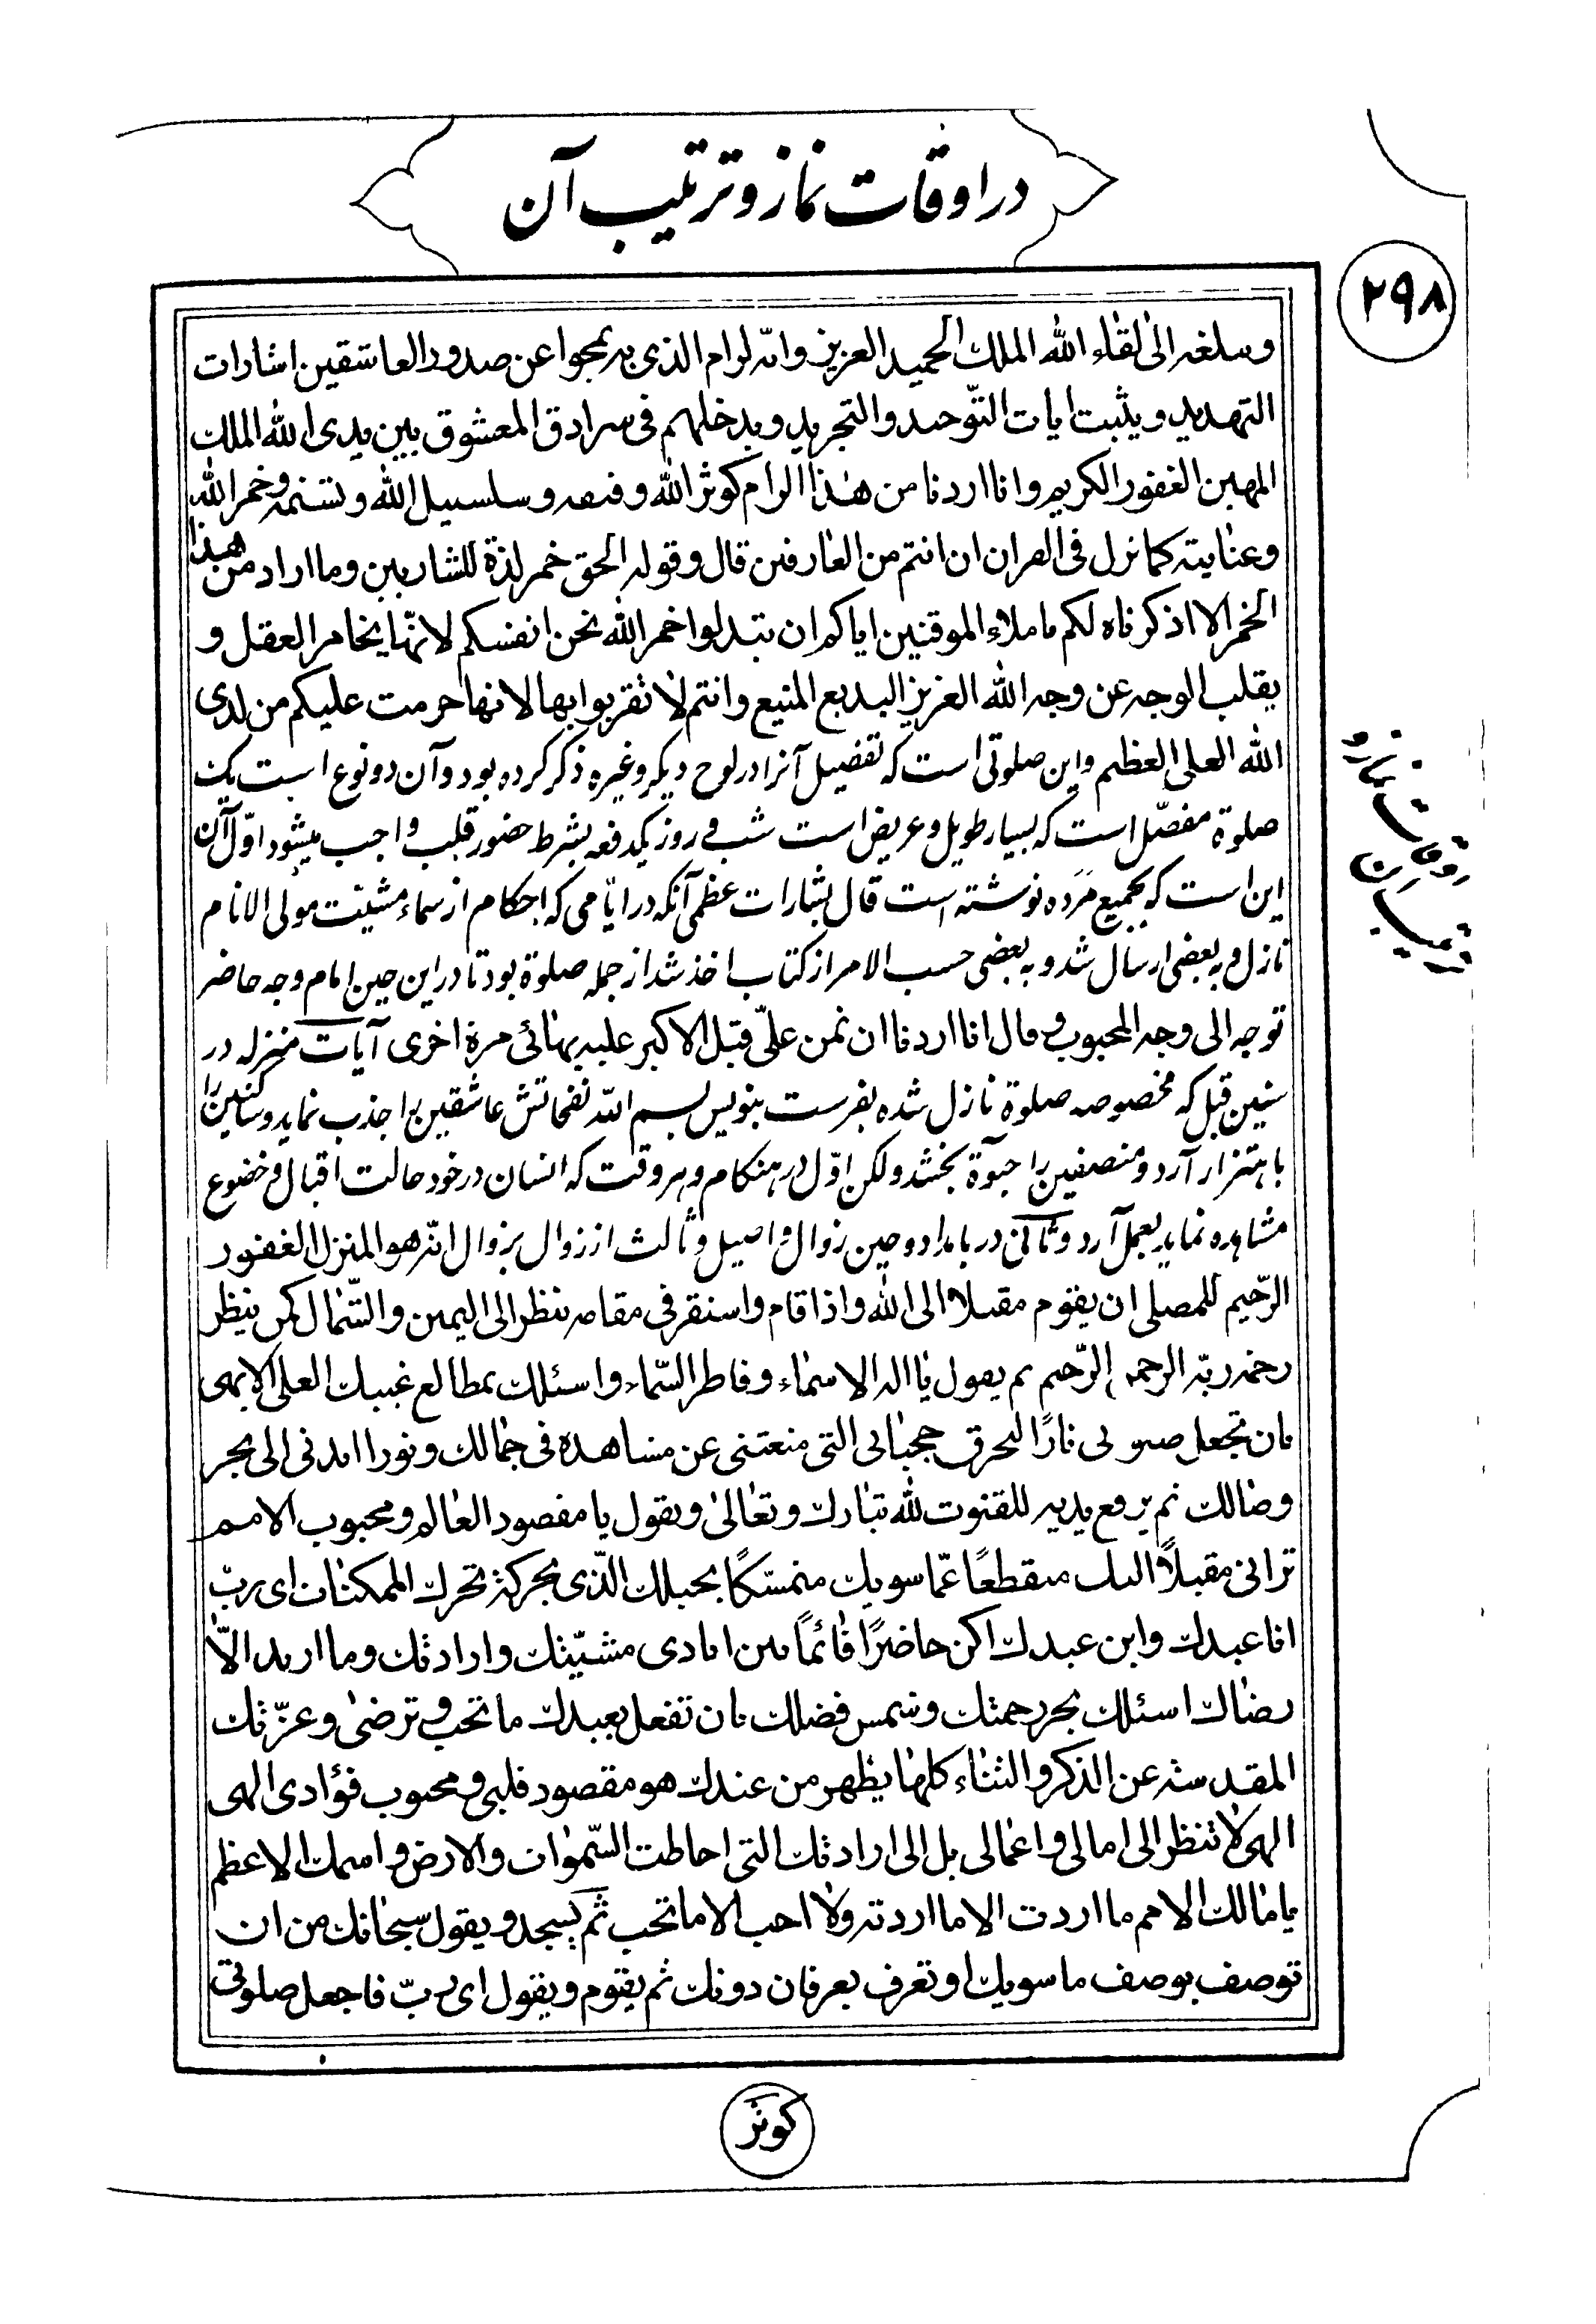 در اوقات نماز و ترتیب آن
۲۹۸
و سلغه الیٰ لقاء الله الملك الحمید العزیز و انه لرام الذی به یمحوا عن صدور العاشقین اشارات
التهدید و یثبت ایات التوّحید و التجرید و یدخلهم فی سرادق المعشوق بین یدی الله الملك
المهین الغفور الكریم و انا اردنا من هٰذا الرام كوثر الله و فیضه و سلسبیل الله و تسنمه و خمر الله
و عنایته كما نزل فی الفران ان انتم من العارفین قال و قوله الحق خمر لذة للشاربین و ما اراد من هذا
الخمر الا اذكرناه لكم یا ملاء الموقنین ایاكم ان تبدلوا خمر الله نحن انفسكم لانهّا یخامر العقل و
یقلب الوجه عن وجه الله العزیز البدیع المنیع و انتم لا تقربوا بها لانها حرمت علیكم من لدی
الله العلی العظیم و این صلوتی است كه تفضیل آنرا در لوح دیكر و غیره ذكر كرده بود و آن دو نوع است یك
صلوة مفصّل است كه بسیار طویل و عریض است شب و روز یكدفعه بشرط حضور قلب واجب میشود اوّل آن
این است كه بجمیع مَرَده نوشته است قال بشارات عظمی آنكه در ایّامی كه احكام از سماء مشیّت مولی الانام
نازل و به بعضی ارسال شد و به بعضی حسب الامر از كتاب اخذ شد از جمله صلوة بود تا در این حین امام وجه حاضر
توجه الی وجه المحبوب و قال انا اردنا ان نمن علیّ قبل الاكبر علیه بهائی مرة اخری آیات منزله در
سنین قبل كه مخصوصه صلوة نازل شده بفرست بنویس بسم الله نفحاتش عاشقین را جذب نماید و ساكنین را
باهتزار آرد و منصفین را حیوة بخشد و لكن اوّل در هنكام و هر وقت كه انسان در خود حالت اقبال و خضوع
مشاهده نماید بعمل آرد و ثانی در بامداد و حین زوال و اصیل و ثالث از زوال بزوال انه هو المنزل الغفور
الرّحیم للمصلی ان یقوم مقبلا الی الله و اذا قام و استقر فی مقامه ینظر الی الیمین و الشّمال كمن ینظر
رحمه ربّه الرحمن الرّحیم ثم یقول یا اله الاسماء و فاطر السّماء و اسئلك بمطالع غیبك العلی الابهی
بان تجعل صلوتی نارًا لتحرق حجباتی التی منعتنی عن مشاهده فی جمالك و نورا یدلنی الی بحر
وصالك ثم یرفع یدیه للقنوت لله تبارك و تعالیٰ و یقول یا مقصود العالم و محبوب الامم
ترانی مقبلاً الیك منقطعًا عمّا سویك متمسّكًا بحبلك الذّی بحركته تحرك الممكنات ای ربّ
انا عبدك و ابن عبدك اكن حاضرًا قائماً بین ایادی مشیّتك و ارادتك و ما ارید الاّ
رضاك اسئلك ببحر رحمتك و شمس فضلك بان تفعل بعبدك ما تحب و ترضیٰ و عزّتك
المقدسته عن الذكر و الثناء كلها یظهر من عندك هو مقصود قلبی و محبوب فؤادی الهی
الهی لا تنظر الی امالی و اعمالی بل الی ارادتك التی احاطت السّموات و الارض و اسمك الاعظم
یا مالك الامم ما اردت الا ما اردته و لا احب الا ما تحب ثم یسجد و یقول سبحانك من ان
توصف بوصف ما سویك او تعرف بعرفان دونك ثم یقوم و یقول ای ربّ فاجعل صلوتی
كوثر